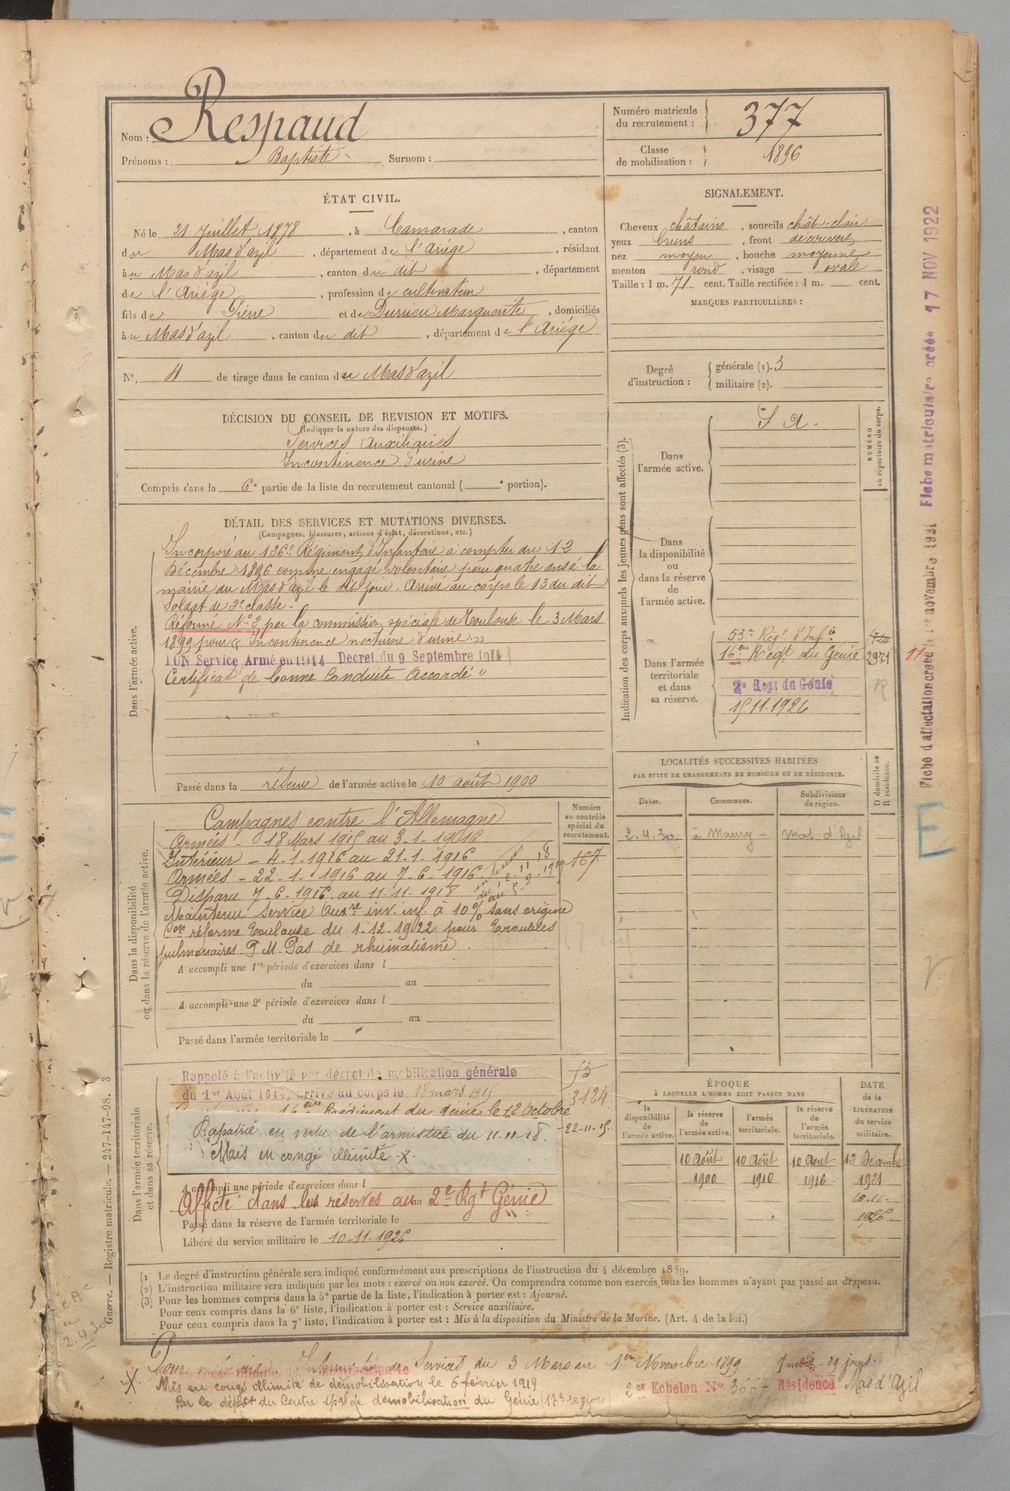 Nom : Respaud
Prénoms : Baptiste Surnom :
Numéro matricule du recrutement : 377
Classe de mobilisation : 1896
ÉTAT CIVIL.
Né le 21 Juillet 1878, à Camarade, canton
du Mas d'azil, département de l'Ariège, résidant
à u Mas d'azil, canton du dit, département
de l'Ariège, profession de cultivateur
fils de Pierre et de Durrieu Marguerite, domiciliés
à u Mas d'azil, canton du dit, département de l'Ariège
N° 4 de tirage dans le canton du Mas d'azil
SIGNALEMENT.
Cheveux châtains, sourcils chât-clair
yeux bruns, front découvert
nez moyen, bouche moyenne
menton rond, visage ovale
Taille : 1 m. 71 cent. Taille rectifiée : 1 m. cent.
MARQUES PARTICULIÈRES :
Degré d'instruction : générale (1). 3
militaire (2).
DÉCISION DU CONSEIL DE REVISION ET MOTIFS.
(Indiquer la nature des dispenses.)
Services Auxiliaires
Incontinence d'urine
Compris dans la 6e partie de la liste du recrutement cantonal ( e portion).
DÉTAIL DES SERVICES ET MUTATIONS DIVERSES.
(Campagnes, blessures, actions d'éclat, décorations, etc.)
Dans l'armée active.
Incorporé au 126e Régiment d'Infanterie à compter du 12
Décembre 1896 comme engagé volontaire pour quatre ans à la
mairie du Mas d'azil le dit jour. Arrivé au corps le 13 du dit
Soldat de 2e classe.
Réformé N° 2 par la commission spéciale de Toulouse le 3 Mars
1899 pour « Incontinence nocturne d'urine »
Service Armé en 1914 Decret du 9 Septembre 1914
Certificat de bonne Conduite Accordé
Passé dans la réserve de l'armée active le 10 août 1900
Indication des corps auxquels les jeunes gens sont affectés (3).
NUMÉRO au répertoire du corps.
Dans l'armée active.
S a.
Dans la disponibilité ou dans la réserve de l'armée active.
Dans l'armée territoriale et dans sa réserve.
53e Régt d'Infie
16e Régt du Génie 2971
2e Regt du Génie
15 11.1926
Dans la disponibilité ou dans la réserve de l'armée active.
Numéro au contrôle spécial du recrutement.
167
Campagnes contre l'Allemagne
Armées - 18 Mars 1915 au 3-1-1916
Intérieur - 4-1-1916 au 21-1-1916
Armées - 22-1-1916 au 7-6-1916
Disparu 7-6-1916 au 11-11-1918
Maintenu service Auxre inv. inf. à 10% sans origine
Con réforme Toulouse du 1-12-1922 pour troubles
pulmonaires. P.M. Pas de rhumatisme.
A accompli une 1re période d'exercices dans l
du au
A accompli une 2e période d'exercices dans l
du au
Passé dans l'armée territoriale le
LOCALITÉS SUCCESSIVES HABITÉES
PAR SUITE DE CHANGEMENTS DE DOMICILE OU DE RÉSIDENCE.
Dates. Communes. Subdivisions de région. D domicile ou R résidence.
2.4.30 à Maury - Mas d'Azil
Dans l'armée territoriale et dans sa réserve.
Rappelé à l'activité par décret de mobilisation générale
du 1er Août 1914, arrivé au corps le 18 mars 1915
Régiment du génie le 12 Octobre
3124
22-11-15
Rapatrié en vertu de l'armistice du 11-11-18.
Mais en congé illimité X
A accompli une période d'exercices dans l
Affecté dans les réserves au 2e Rgt Génie
Passé dans la réserve de l'armée territoriale le
Libéré du service militaire le 10-11-1926
ÉPOQUE
À LAQUELLE L'HOMME DOIT PASSER DANS
la disponibilité de l'armée active. la réserve de l'armée active. l'armée territoriale. la réserve de l'armée territoriale. DATE de la LIBÉRATION du service militaire.
10 Août 1900 10 Août 1910 10 Aout 1916 12 Décembre 1921
10-11-1926
(1) Le degré d'instruction générale sera indiqué conformément aux prescriptions de l'instruction du 4 décembre 1889.
(2) L'instruction militaire sera indiquée par les mots : exercé ou non exercé. On comprendra comme non exercés tous les hommes n'ayant pas passé au drapeau.
(3) Pour les hommes compris dans la 5e partie de la liste, l'indication à porter est : Ajourné.
Pour ceux compris dans la 6e liste, l'indication à porter est : Service auxiliaire.
Pour ceux compris dans la 7e liste, l'indication à porter est : Mis à la disposition du Ministre de la Marine. (Art. 4 de la loi.)
Services du 3 Mars au 1er Novembre 1899 29 jours.
X Mis en congé illimité de démobilisation le 6 février 1919
Par le dépôt du Centre spal de démobilisation du Génie (17e région)
2er Echelon N° Résidence Mas d'Azil
Guerre. — Registre matricule. — 247-147-98.
Fiche matriculaire créée 17 NOV 1922
Fiche d'affectation créée le 1er novembre 1921
E